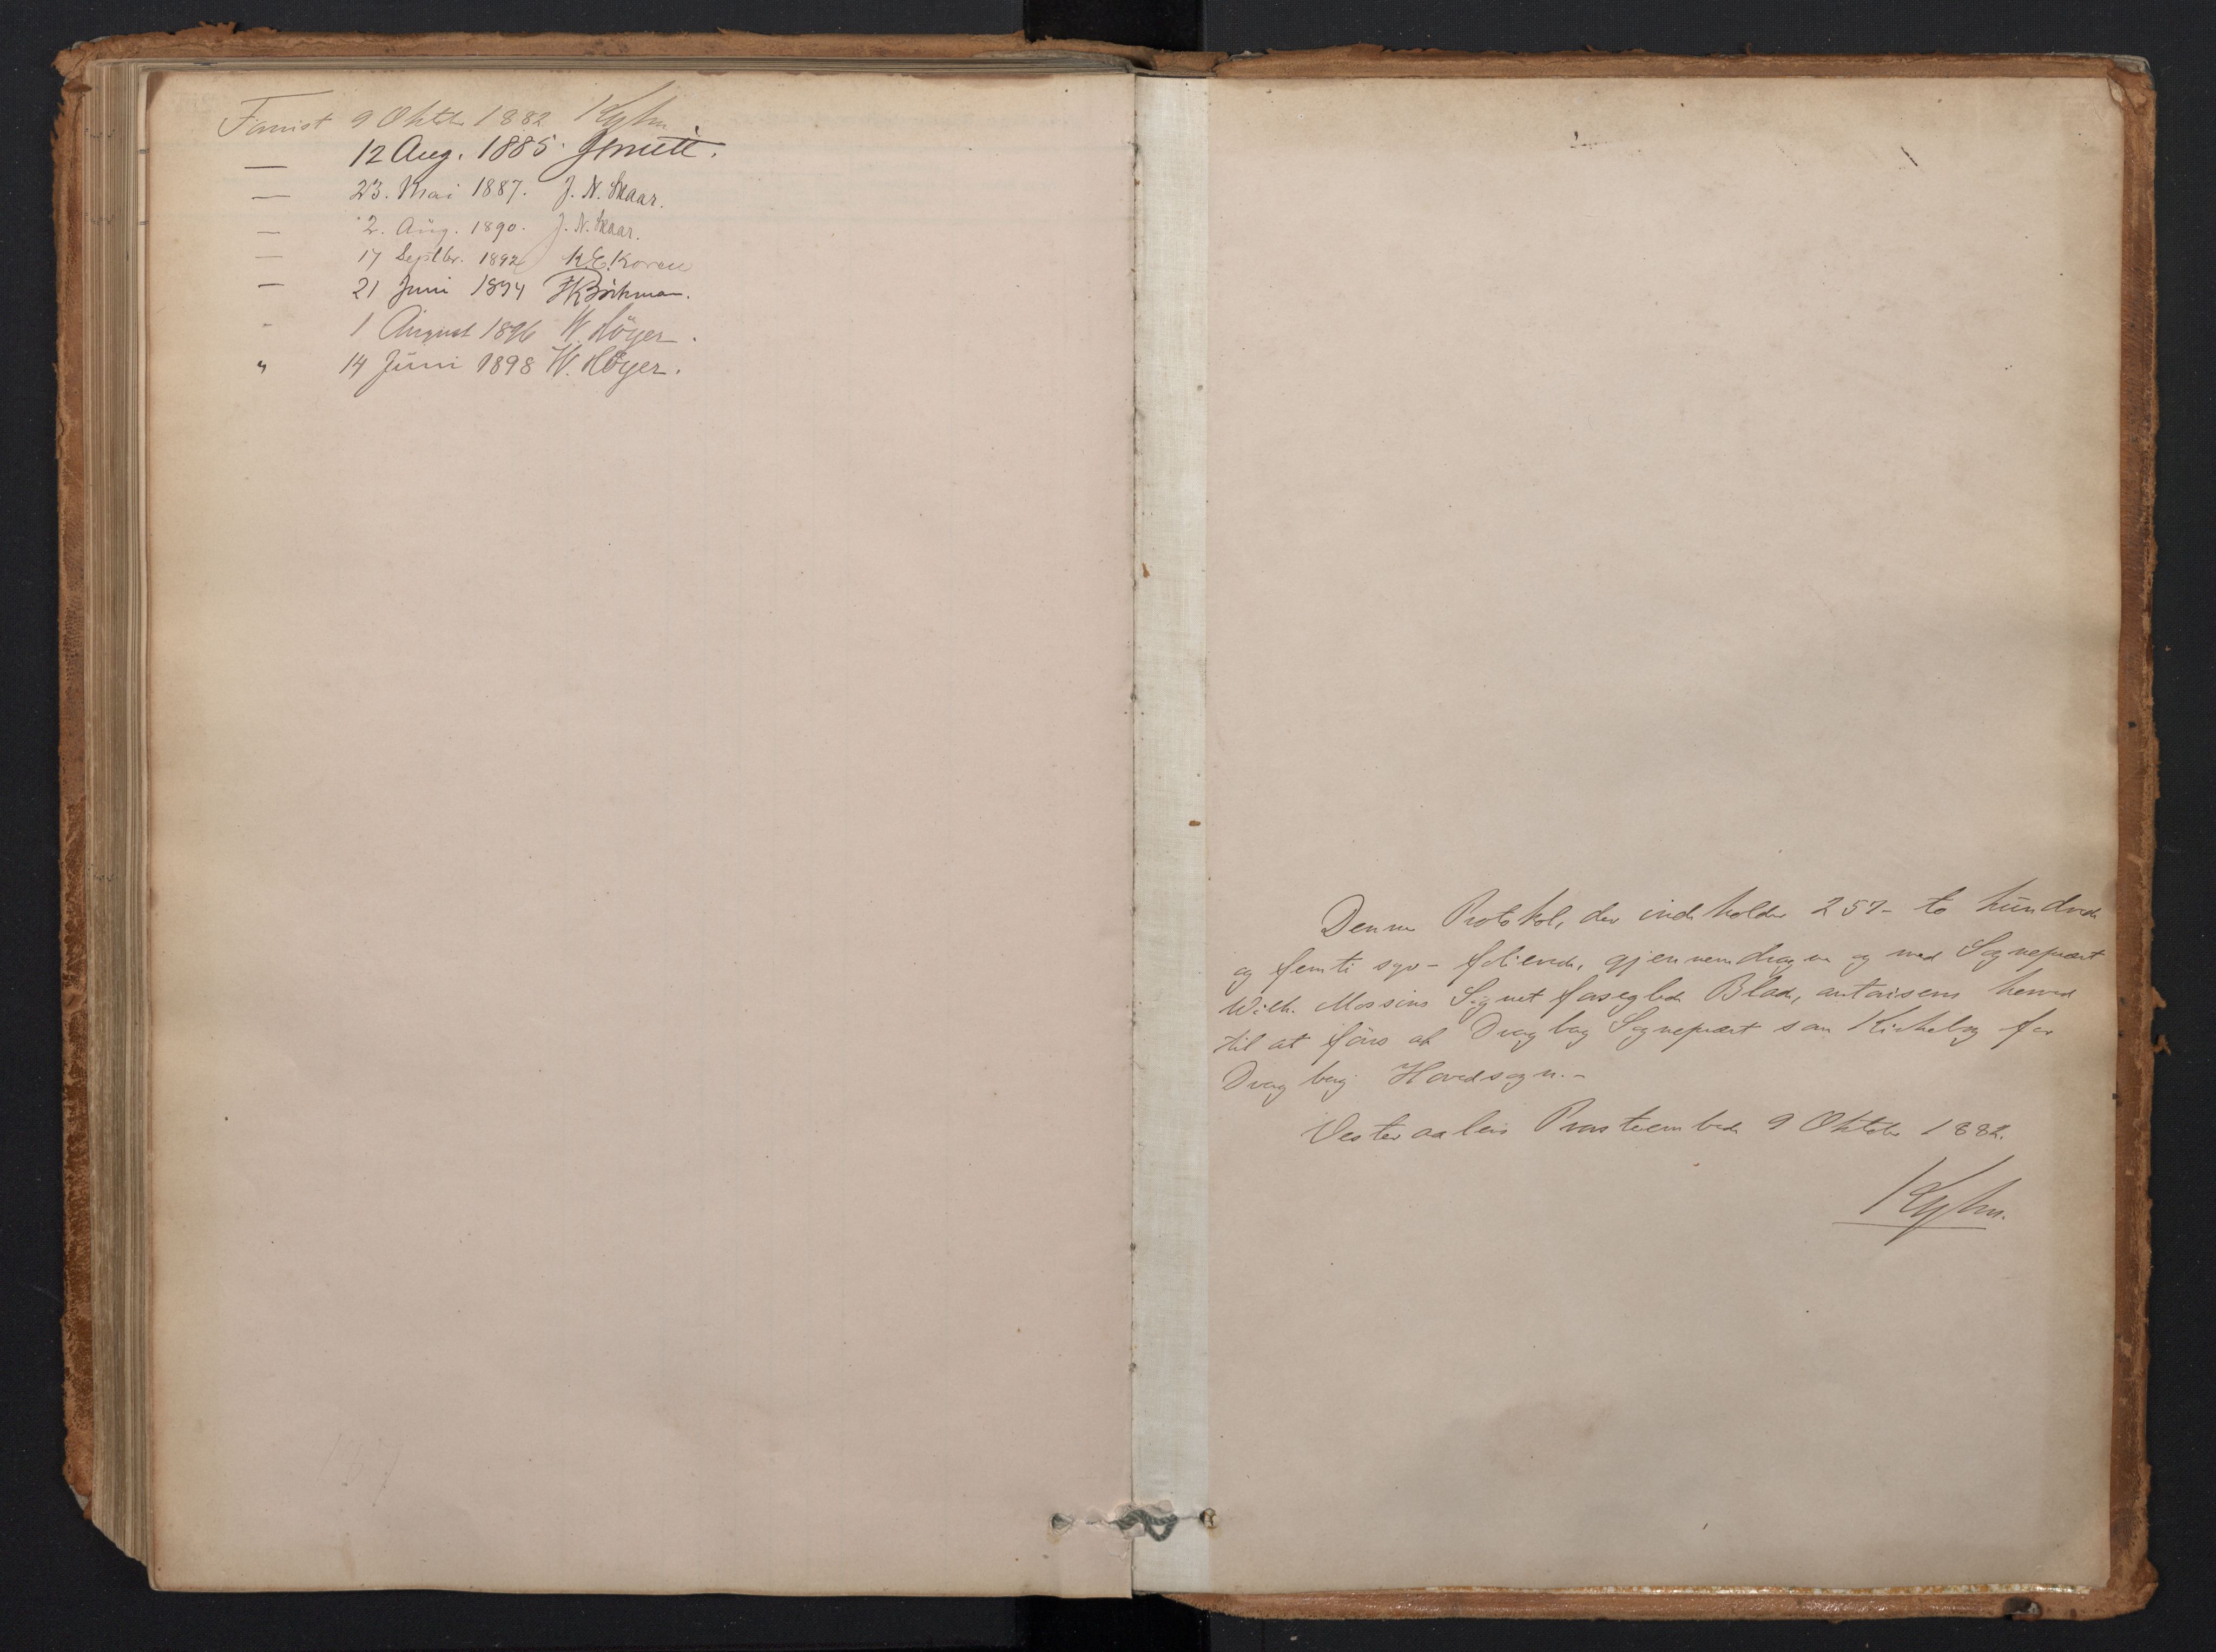 Fævist 9 Oktob 1882 Kyhn
— 12 Aug. 1885.
— 23. Mai 1887. J. N. Skaar.
— 2. Aug. 1890. J. N. Skaar.
— 17 Septbr. 1892 K. E. Koren
— 21 Juni 1894
- 1 August 1896 W. Höyer.
" 14 Juni 1898 W. Höyer.
Denne Protokol, der indeholder 257- to hundrede
og femti syv- folierede, gjennemdragne og med Sognepræst
Wilh. Massins Signet forseglede Blade, autoriseres herved
til at föres af Dragberg Sognepræst som Kirkebog for
Dragberg Hovedsogn.-
Vesteraalens Provsteembede 9 Oktob 1882.
Kyhn.